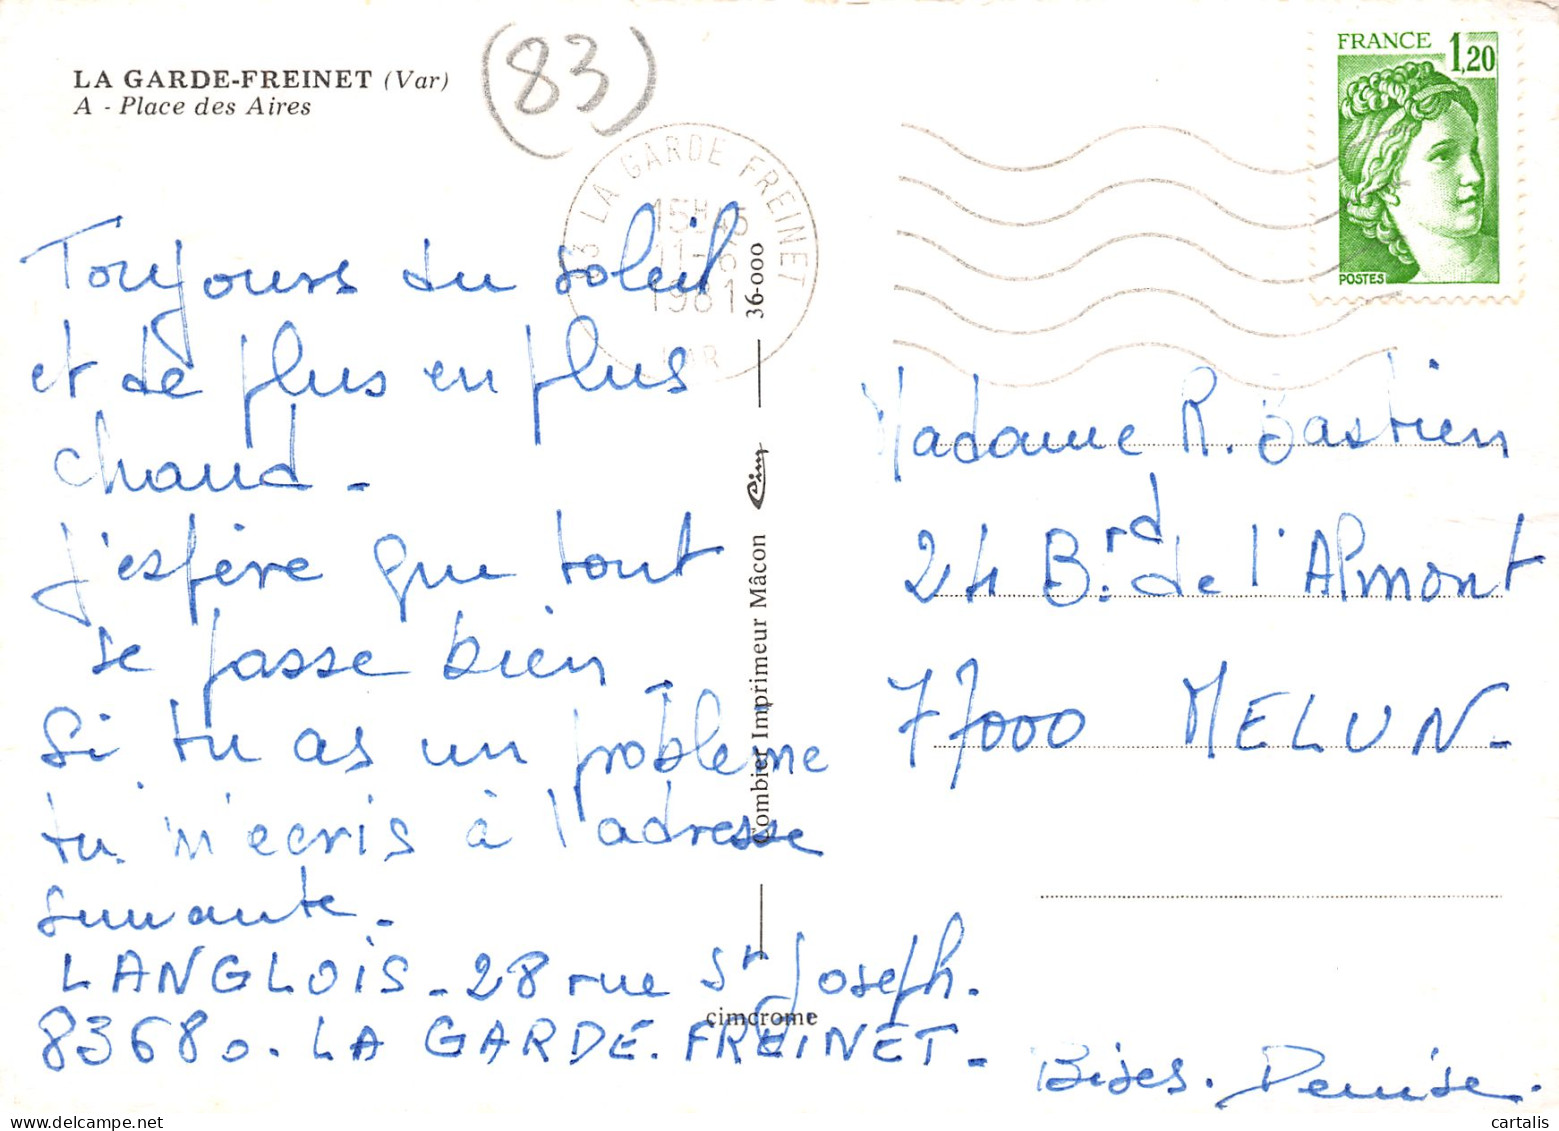 LA GARDE-FREINET (Var)
A - Place des Aires
(83)
83 LA GARDE FREINET
15H45
11-6
1981
VAR
FRANCE 1,20
POSTES
Toujours du soleil
et de plus en plus
chaud -
j'espère que tout
se passe bien
Si tu as un problème
tu m'écris à l'adresse
suivante -
LANGLOIS - 28 rue St Joseph.
83680. LA GARDE. FREINET -
Bises. Denise.
36-000
Cim
Combier Imprimeur Mâcon
cimcrome
Madame R. Bastien
24 B.rd de l'Almont
77000 MELUN -
cartalis